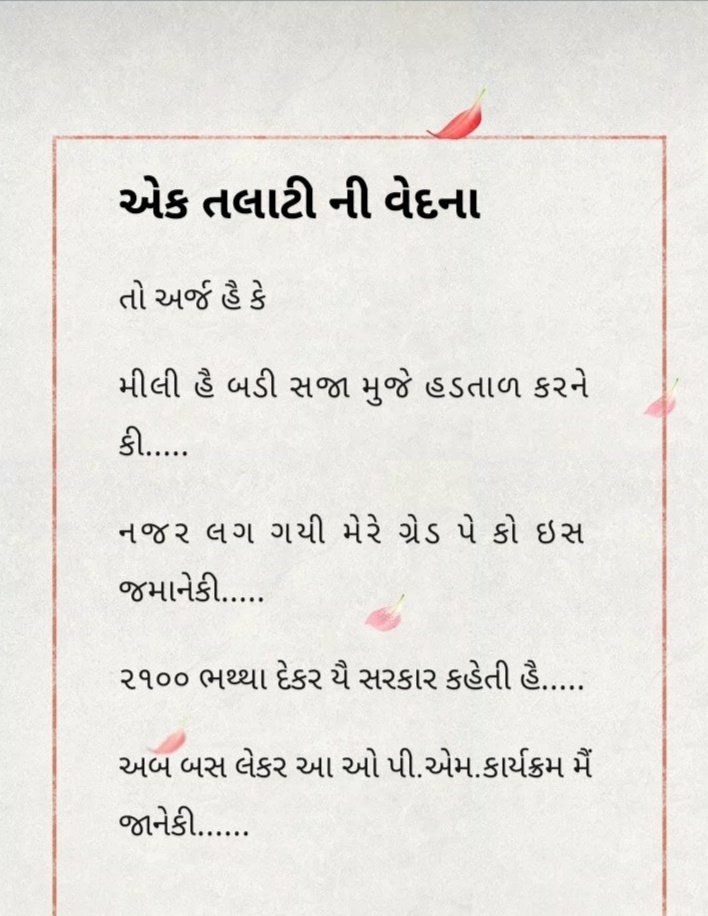 એક તલાટી ની વેદના
તો અર્જ હૈ કે
મીલી હૈ બડી સજા મુજે હડતાળ કરને
કી.....
નજર લગ ગયી મેરે ગ્રેડ પે કો ઇસ
જમાનેકી.....
૨૧૦૦ ભથ્થા દેકર યૈ સરકાર કહેતી હૈ.....
અબ બસ લેકર આ ઓ પી.એમ.કાર્યક્રમ મૈં
જાનેકી......